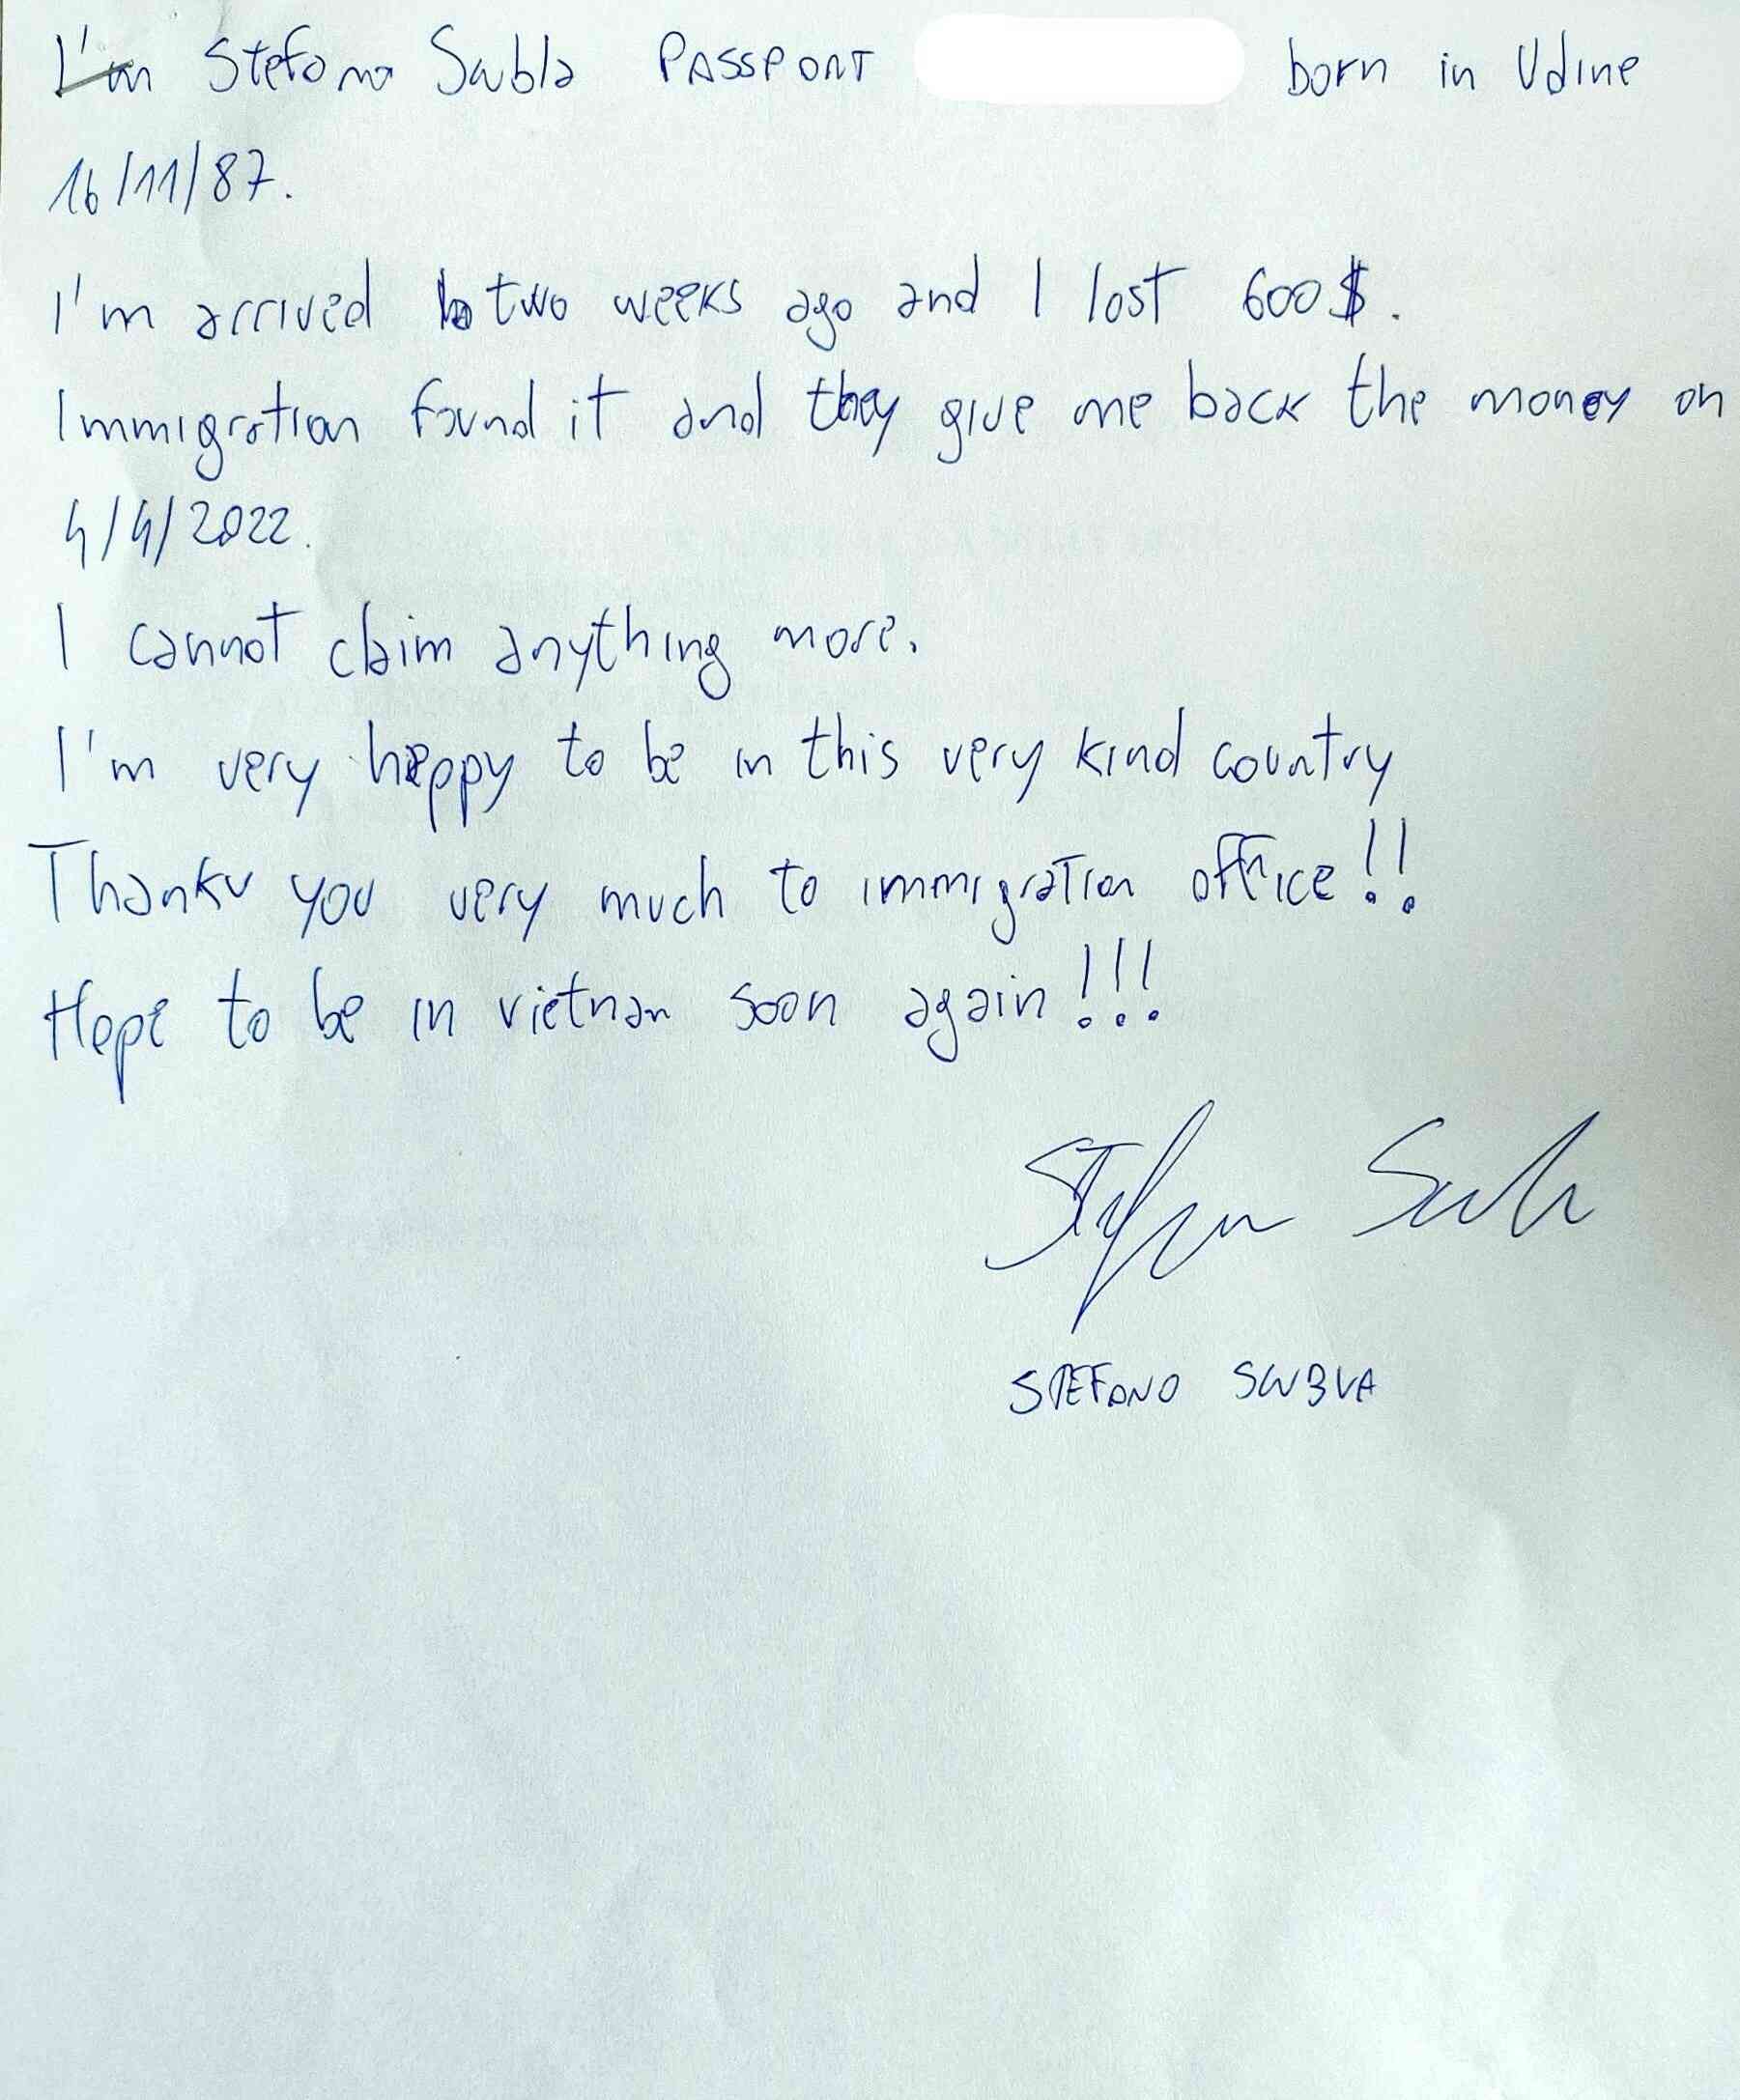 I'm Stefano Swbla PASSPORT born in Udine
16/11/87.
I'm arrived two weeks ago and I lost 600$.
Immigration found it and they give me back the money on
4/4/2022.
I cannot claim anything more.
I'm very happy to be in this very kind country
Thanku you very much to immigration office!!
Hope to be in vietnam soon again!!!
Stefano Swbla
STEFANO SWBLA